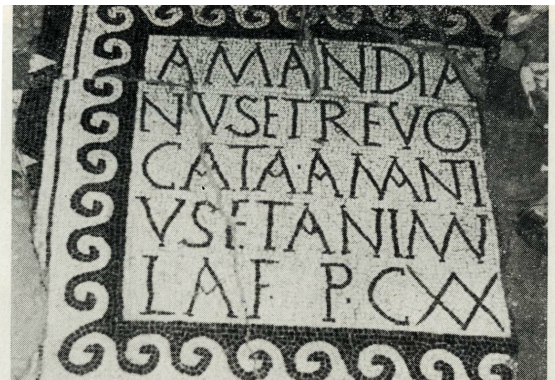 AMANDIA
NVSETREVO
CATA·AMANTI
VSETANIMV
LAF· P·CXX